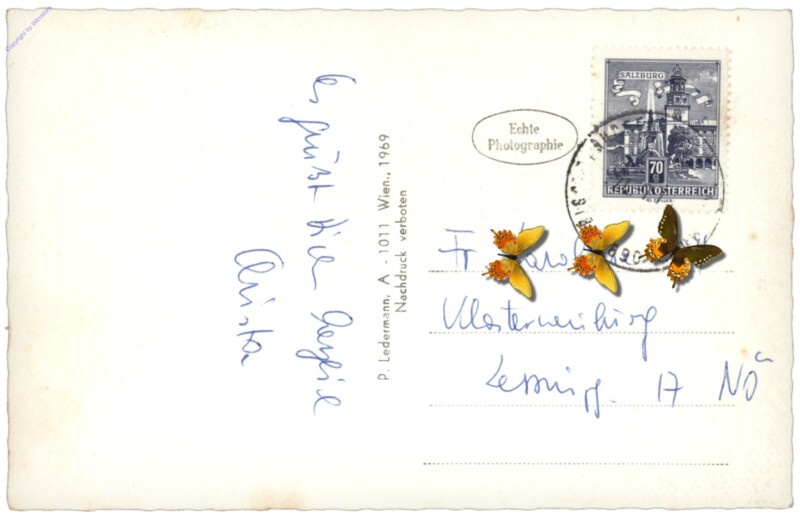 Copyright by Wiesauer
Es grüßt Dich herzlich
Christa
P. Ledermann, A - 1011 Wien., 1969
Nachdruck verboten
Echte
Photographie
SALZBURG
70
g
REPUBLIK ÖSTERREICH
Fr
Klosterneuburg
Lessingg. 17 NÖ